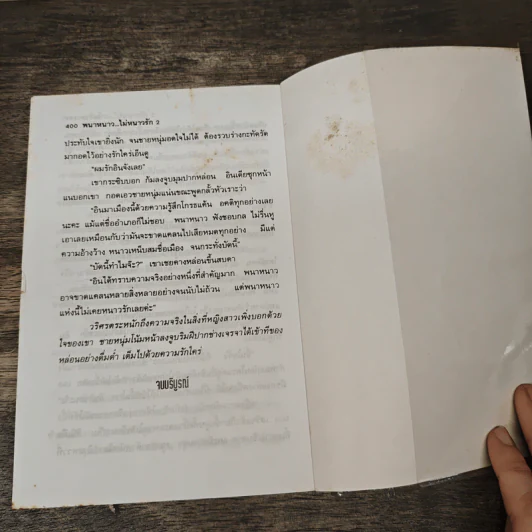 ๔๐๐ พนาหนาว...ไม่หนาวรัก 2
ประทับใจเขายิ่งนัก จนชายหนุ่มอดใจไม่ได้ ต้องรวบร่างกะทัดรัด
มากอดไว้อย่างรักใคร่เอ็นดู
"ผมรักอินจังเลย"
เขากระซิบบอก ก้มลงจูบมุมปากหล่อน อินเดียซุกหน้า
แนบอกเขา กอดเอวชายหนุ่มแน่นขณะพูดกลั้วหัวเราะว่า
"อินมาเมืองนี้ด้วยความรู้สึกโกรธแค้น อคติทุกอย่างเลย
นะคะ แม้แต่ชื่ออำเภอก็ไม่ชอบ พนาหนาว ฟังชอบกล ไม่รื่นหู
เอาเลยเหมือนกับว่ามันจะขาดแคลนไปเสียหมดทุกอย่าง มีแต่
ความอ้างว้าง หนาวเหน็บสมชื่อเมือง จนกระทั่งบัดนี้"
"บัดนี้ทำไมจ๊ะ?" เขาเชยคางหล่อนขึ้นสบตา
"อินได้ทราบความจริงอย่างหนึ่งที่สำคัญมาก พนาหนาว
อาจขาดแคลนหลายสิ่งหลายอย่างจนนับไม่ถ้วน แต่พนาหนาว
แห่งนี้ไม่เคยหนาวรักเลยค่ะ"
วริศรตระหนักถึงความจริงในสิ่งที่หญิงสาวเพิ่งบอกด้วย
ใจของเขา ชายหนุ่มโน้มหน้าลงจูบริมฝีปากช่างเจรจาได้เข้าที่ของ
หล่อนอย่างดื่มด่ำ เต็มไปด้วยความรักใคร่
จบบริบูรณ์